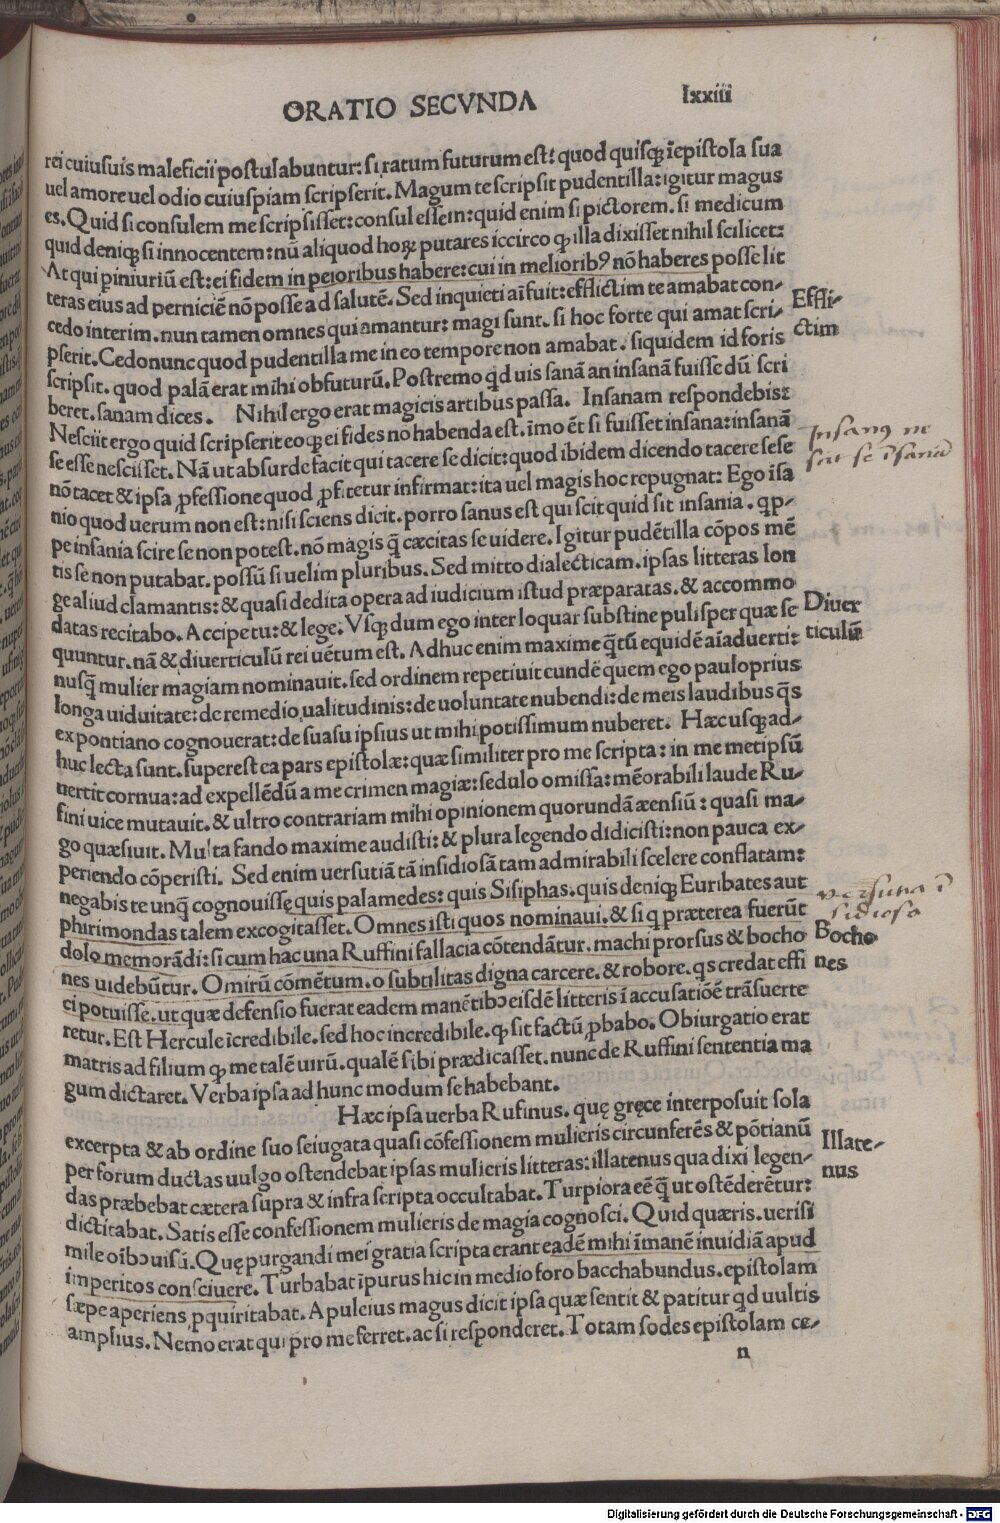 ORATIO SECVNDA
lxxiii
rei cuiusuis maleficii postulabuntur: si ratum futurum est: quod quisqꝫ ī epistola sua
uel amore uel odio cuiuspiam scripserit. Magum te scripsit pudentilla: igitur magus
es. Quid si consulem me scripsisset: consul essem: quid enim si pictorem. si medicum
quid deniqꝫ si innocentem: nū aliquod hoꝝ putares iccirco ꝙ illa dixisset nihil scilicet:
At qui piniuriū est: ei fidem in peioribus habere: cui in melioribꝰ nō haberes posse lit
teras eius ad perniciē nō posse ad salutē. Sed inquieti aī fuit: efflictim te amabat con-
cedo interim. nun tamen omnes qui amantur: magi sunt. si hoc forte qui amat scri-
pserit. Cedo nunc quod pudentilla me in eo tempore non amabat. siquidem id foris
scripsit. quod palā erat mihi obfuturū. Postremo qd uis sanā an insanā fuisse dū scri
beret. sanam dices. Nihil ergo erat magicis artibus passa. Insanam respondebis:
Nesciit ergo quid scripserit eoqꝫ ei fides no habenda est. īmo ēt si fuisset insana: insanā
se esse nescisset. Nā ut absurde facit qui tacere se dicit: quod ibidem dicendo tacere sese
nō tacet & ipsa ꝓfessione quod ꝓfitetur infirmat: ita uel magis hoc repugnat: Ego īsa
nio quod uerum non est: nisi sciens dicit. porro sanus est qui scit quid sit insania. qp-
pe insania scire se non potest. nō magis q̄ cæcitas se uidere. Igitur pudētilla cōpos mē
tis se non putabat. possū si uelim pluribus. Sed mitto dialecticam. ipsas litteras lon
ge aliud clamantis: & quasi dedita opera ad iudicium istud præparatas. & accommo
datas recitabo. Accipe tu: & lege. Vsqꝫ dum ego inter loquar substine pulisper quæ se
quuntur. nā & diuerticulū rei uētum est. Adhuc enim maxime q̄tū equidē aīaduerti:
nusq̄ mulier magiam nominauit. sed ordinem repetiuit cundē quem ego pauloprius
longa uiduitate: de remedio ualitudinis: de uoluntate nubendi: de meis laudibus q̄s
ex pontiano cognouerat: de suasu ipsius ut mihi potissimum nuberet. Hæc usqꝫ ad-
huc lecta sunt. superest ea pars epistolæ: quæ similiter pro me scripta: in me metipsū
uertit cornua: ad expellēdū a me crimen magiæ: sedulo omissa: mēorabili laude Ru-
fini uice mutauit. & ultro contrariam mihi opinionem quorundā æensiū: quasi ma-
go quæsiuit. Multa fando maxime audisti: & plura legendo didicisti: non pauca ex-
periendo cōperisti. Sed enim uersutiā tā insidiosā tam admirabili scelere conflatam:
negabis te unq̄ cognouissę quis palamedes: quis Sisiphas. quis deniqꝫ Euribates aut
phirimondas talem excogitasset. Omnes isti quos nominaui. & si q præterea fuerūt
dolo memorādi: si cum hac una Ruffini fallacia cōtendātur. machi prorsus & bocho
nes uidebūtur. O mirū cōmētum. o subtilitas digna carcere. & robore. qs credat effi
ci potuisse. ut quæ defensio fuerat eadem manētibꝫ eisdē litteris ī accusatiōē trāsuerte
retur. Est Hercule īcredibile. sed hoc incredibile. ꝙ sit factū ꝓbabo. Obiurgatio erat
matris ad filium ꝙ me talē uirū. qualē sibi prædicasset. nunc de Ruffini sententia ma
gum dictaret. Verba ipsa ad hunc modum se habebant.
Hæc ipsa uerba Rufinus. quę gręce interposuit sola
excerpta & ab ordine suo seiugata quasi cōfessionem mulieris circunferēs & pōtianū
per forum ductas uulgo ostendebat ipsas mulieris litteras: illatenus qua dixi legen-
das præbebat cætera supra & infra scripta occultabat. Turpiora eē q̄ ut ostēderētur:
dictitabat. Satis esse confessionem mulieris de magia cognosci. Quid quæris. uerisi
mile oībꝫ uisū. Quę purgandi mei gratia scripta erant eadē mihi īmanē inuidiā apud
imperitos consciuere. Turbabat īpurus hic in medio foro bacchabundus. epistolam
sæpe aperiens pquiritabat. Apuleius magus dicit ipsa quæ sentit & patitur qd uultis
amplius. Nemo erat qui pro me ferret. ac si responderet. Totam sodes epistolam ce-
n
Effli-
ctim
Insanꝰ ne
scit se īsanū
Diuer
ticulū
versutia ī
sidiosa
Bocho
nes
Illate-
nus
Digitalisierung gefördert durch die Deutsche Forschungsgemeinschaft - DFG